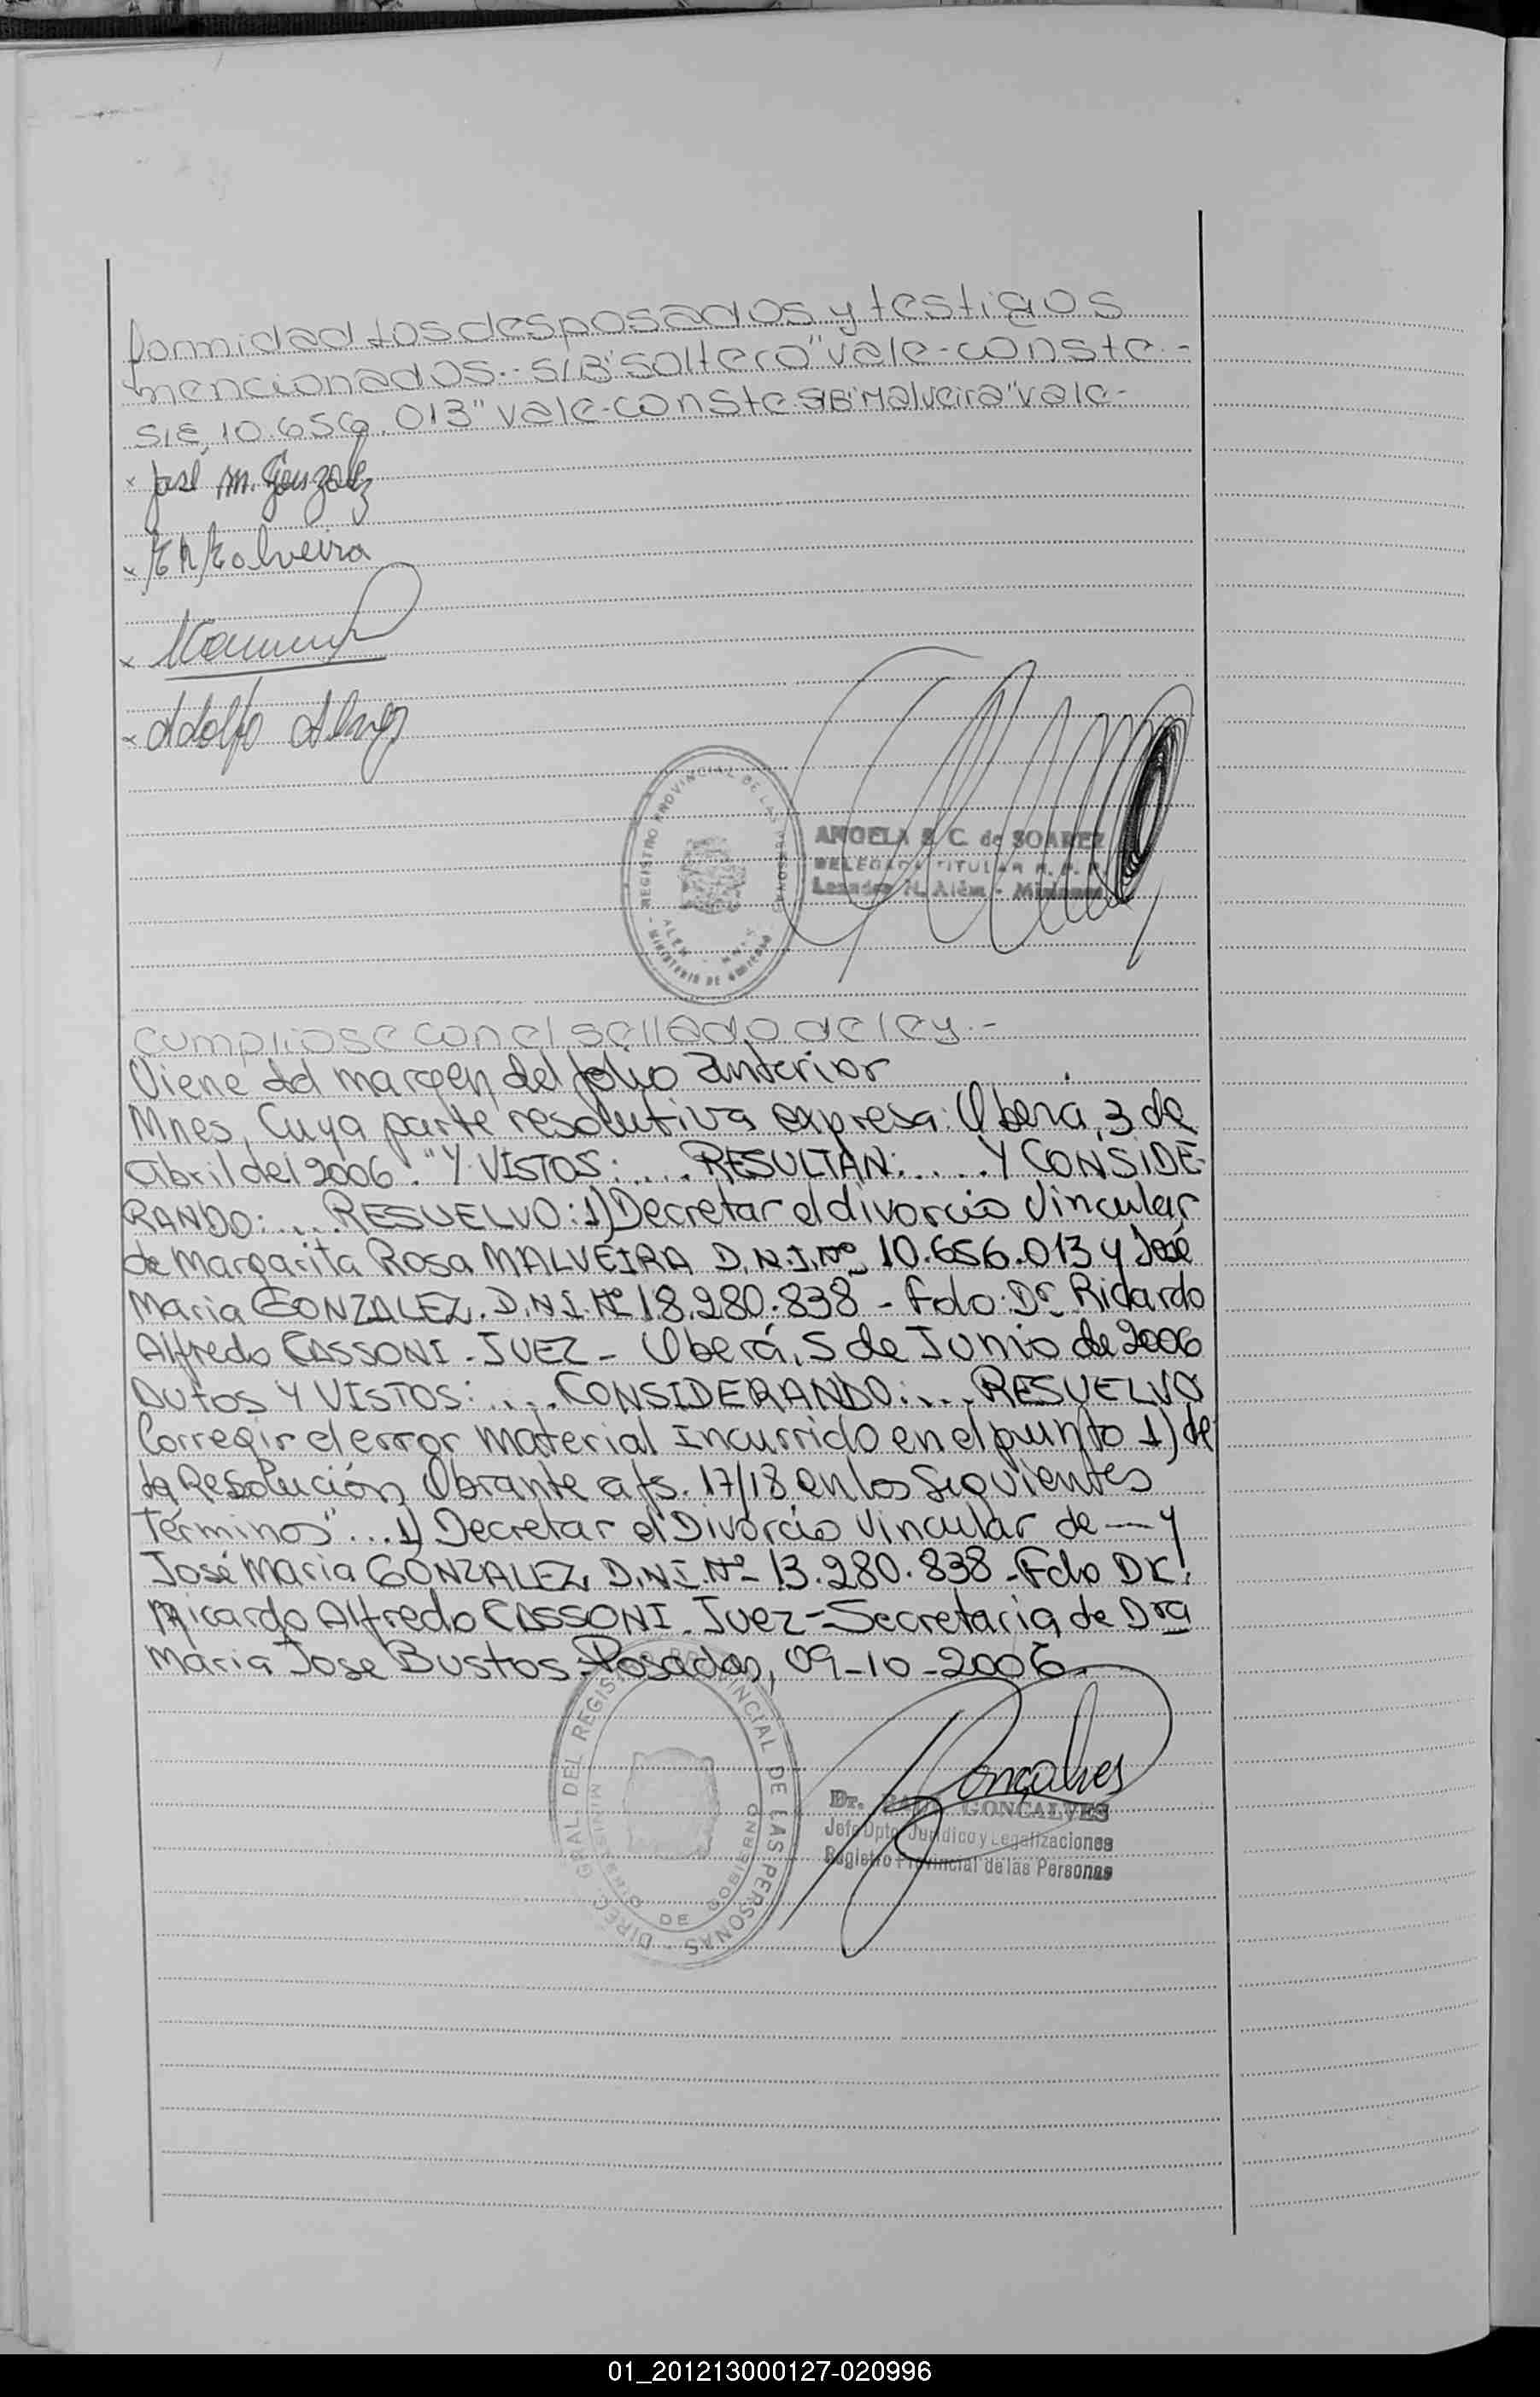 formidad los desposados y testigos
mencionados.- S/B "soltero" vale-conste.-
S/E, 10.656.013" vale-conste. S/B "Malveira" vale-
x José M. Gonzalez
x Malveira
x
x Adolfo
REGISTRO PROVINCIAL DE LAS PERSONAS
ALEM - MNES
MINISTERIO DE GOBIERNO
ANGELA S. C. de SOAREZ
DELEGADA TITULAR R. P. P.
Leandro N. Além - Misiones
Cumpliose con el sellado de ley.-
Viene del margen del folio anterior
Mnes, Cuya parte resolutiva expresa: Oberá, 3 de
abril del 2006. "Y VISTOS: .... RESULTAN: ..... Y CONSIDE-
RANDO: .... RESUELVO: 1) Decretar el divorcio Vincular
de Margarita Rosa MALVEIRA D.N.I. Nº 10.656.013 y José
Maria GONZALEZ. D.N.I. Nº 18.280.838 - Fdo: Dr. Ricardo
Alfredo CASSONI - JUEZ - Oberá, 5 de Junio de 2006
Autos Y VISTOS: .... CONSIDERANDO: .... RESUELVO
Corregir el error Material Incurrido en el punto 1) de
la Resolución Obrante a fs. 17/18 en los Siguientes
Términos" ... 1) Decretar el Divorcio Vincular de --- y
José Maria GONZALEZ, D.N.I. Nº 13.280.838 - Fdo DR.
Ricardo Alfredo CASSONI. Juez = Secretaria de Dra
Maria Jose Bustos - Posadas, 09-10-2006
DIREC. GRAL DEL REGISTRO PROVINCIAL DE LAS PERSONAS
MINISTERIO DE GOBIERNO
Gonçalves
Dr. GONÇALVES
Jefe Dpto. Jurídico y Legalizaciones
Registro Provincial de las Personas
01_201213000127-020996